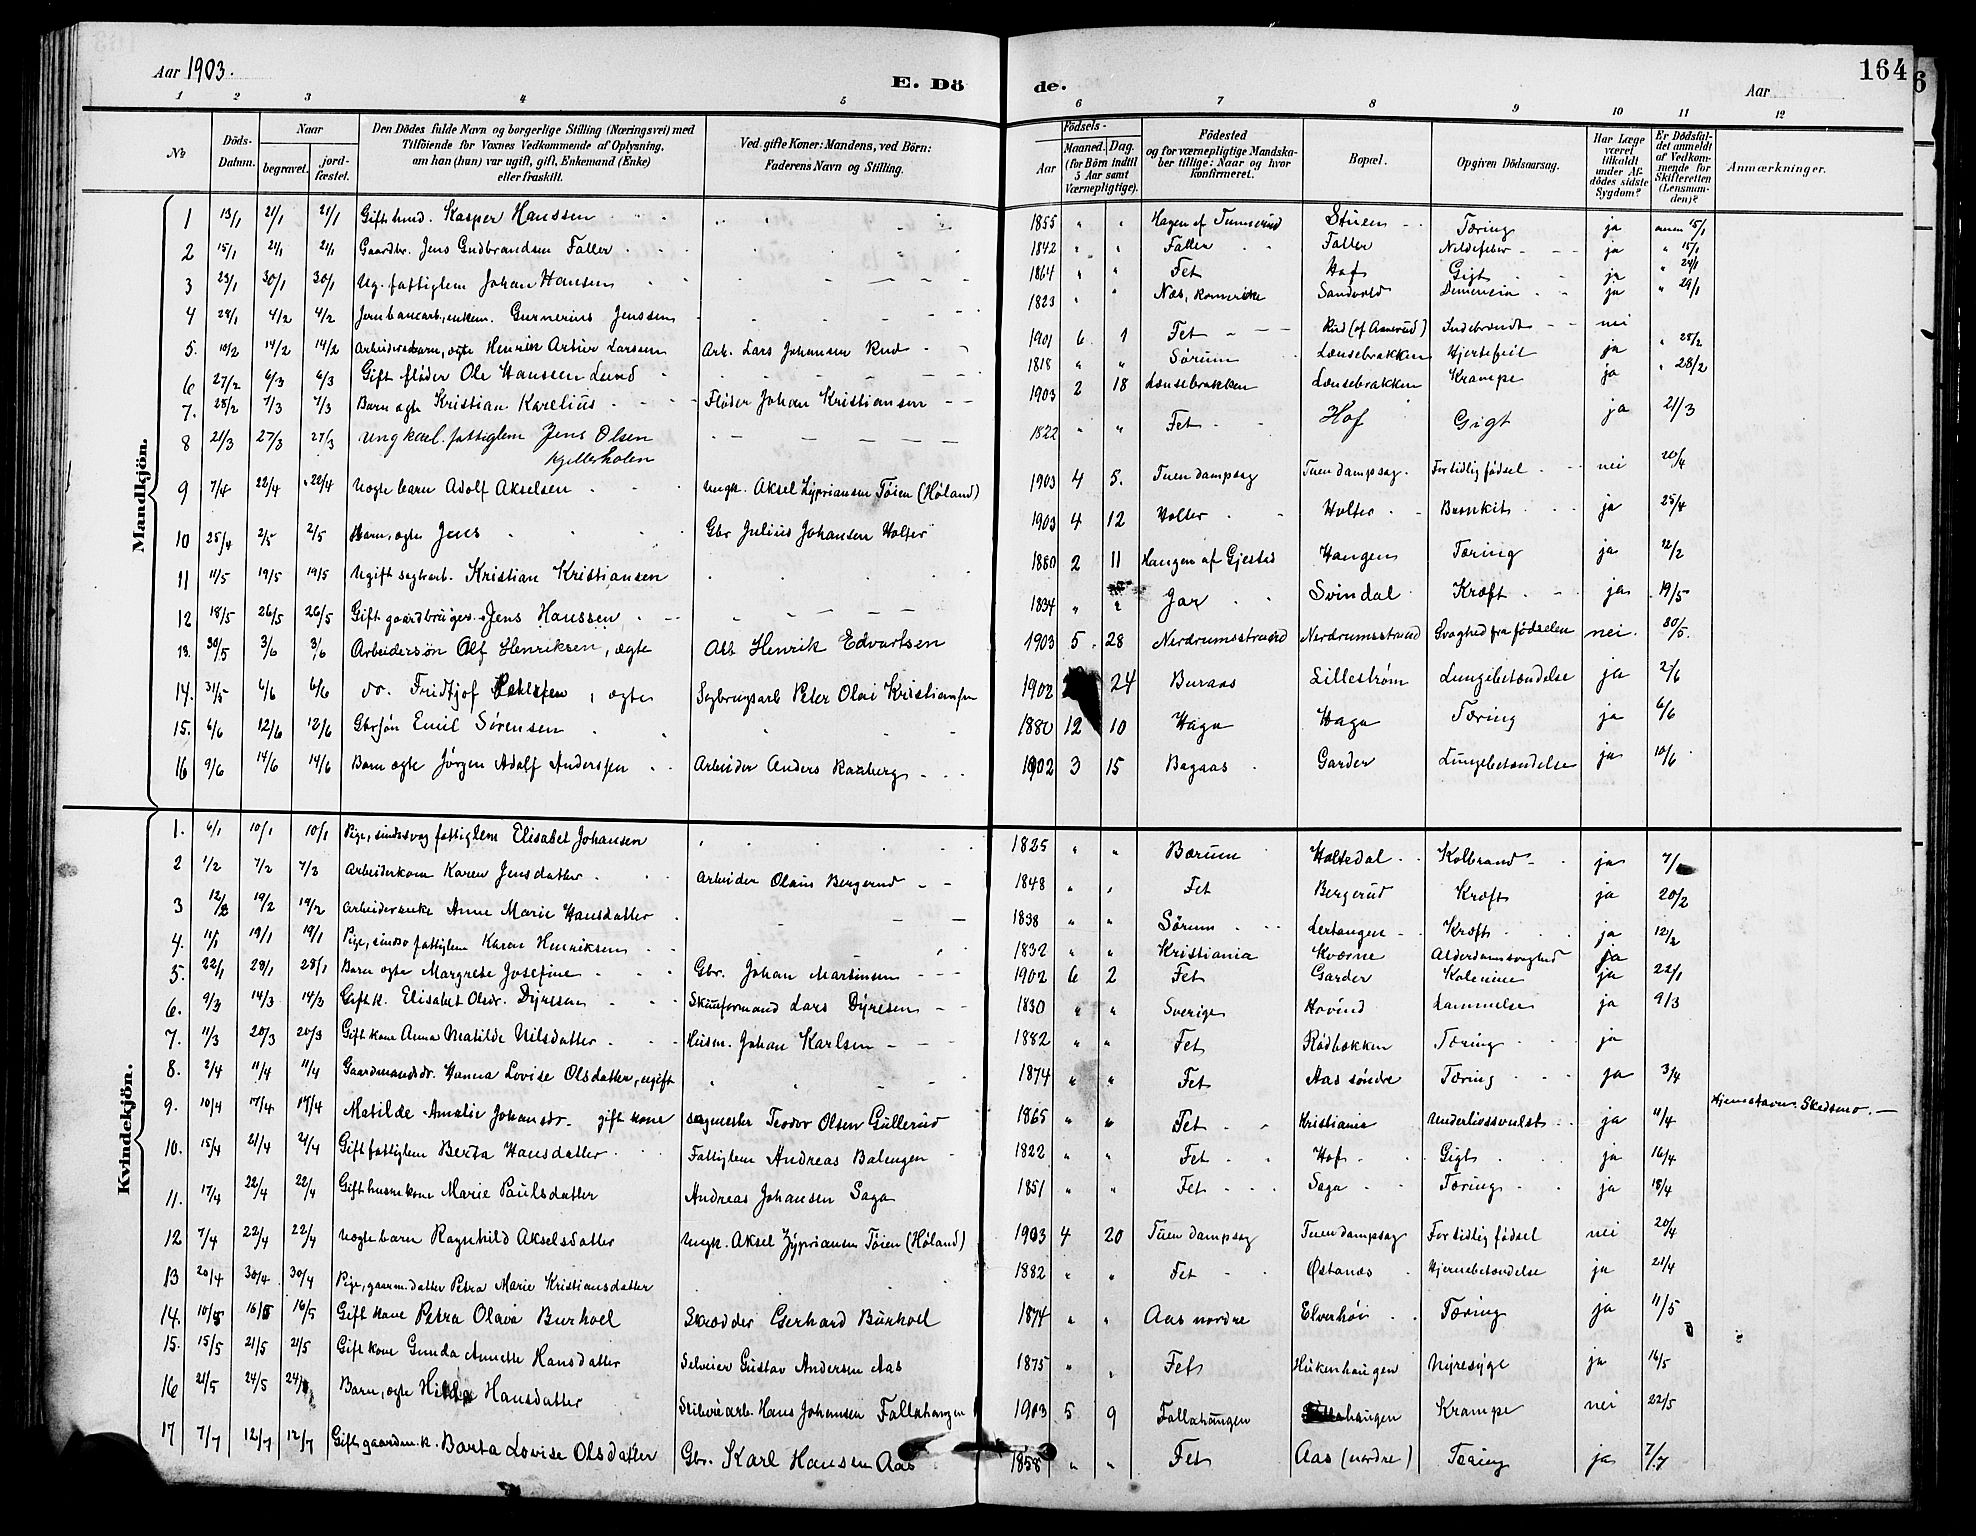 Aar 1903.
E. Dö de.
Aar
164
1 2 3 4 5 6 7 8 9 10 11 12
No
Döds-Datum.
Naar
begravet.
jord-fæstet.
Den Dödes fulde Navn og borgerlige Stilling (Næringsvei) med Tilföiende for Voxnes Vedkommende af Oplysning, om han (hun) var ugift, gift, Enkemand (Enke) eller fraskilt.
Ved gifte Koner: Mandens, ved Börn: Faderens Navn og Stilling.
Födsels-
Aar
Maaned. Dag. (for Börn indtil 5 Aar samt Værnepligtige).
Födested og for værnepligtige Mandskaber tillige: Naar og hvor konfirmeret.
Bopæl.
Opgiven Dödsaarsag.
Har Læge været tilkaldt under Afdödes sidste Sygdom?
Er Dödsfaldet anmeldt af Vedkommende for Skifteretten (Lensmanden)?
Anmærkninger.
Mandkjön.
1 13/1 21/1 21/1 Gift hmd. Kasper Hanssen 1855 " " Hagen af Tunnerud Stuen Tæring ja anm 15/1
2 15/1 21/1 21/1 Gaardbr. Jens Gudbrandsen Faller 1842 " " Faller Faller Nældefeber ja " 15/1
3 23/1 30/1 30/1 Ug. fattiglem Johan Hansen 1864 " " Fet Hof Gigt ja " 24/1
4 28/1 4/2 4/2 Jernbanearb., enkem. Gunnerius Jenssen 1823 " " Næs, Romerike Sandvold Demencia ja " 29/1
5. 10/2 14/2 14/2 Arbeidersbarn, ægte Henrik Artur Larssen Arb. Lars Johansen Rud 1901 6 1 Fet Rud (af Aanerud) Indebrændt nei
6 27/2 6/3 6/3 Gift fløder Ole Hanssen Lund 1818 " " Sørum Lænsebrakken Hjertefeil ja " 28/2
7. 28/2 7/3 7/3 Barn ægte Kristian Karelius Fløder Johan Kristiansen 1903 2 18 Lænsebrakken Lænsebrakken Krampe ja " 28/2
8 21/3 27/3 27/3 Ungkarl. fattiglem Jens Olsen 1822 " " Fet Hof Gigt ja 21/3
Kjellerholen
9 7/4 22/4 22/4 Uægte barn Adolf Akselsen Ungk. Aksel Zypriansen Tøien (Høland) 1903 4 5. Tuen dampsag Tuen dampsag. For tidlig fødsel nei 20/4
10 25/4 2/5 2/5 Barn, ægte Jens Gbr Julius Johansen Holter 1903 4 12 Holter Holter Bronkit ja 25/4
11 11/5 19/5 19/5 Ugift sagarb. Kristian Kristiansen 1880 2 11 Haugen af Gjestad Haugen Tæring ja 12/2
12 18/5 26/5 26/5 Gift gaardbruger Jens Hanssen 1834 " " Jar Svindal Kræft ja 19/5
13. 30/5 3/6 3/6 Arbeidersøn Olf Henriksen, ægte Arb Henrik Edvartsen 1903 5 28 Nerdrumsstrand Nerdrumsstrand Svaghed fra fødselen nei. 30/5.
14. 31/5 6/6 6/6 do. Fridtjof , ægte Sagbrugsarb Peter Olai Kristiansen 1902 24 Buraas Lillestrøm Lungebetændelse ja 2/6
15. 6/6 12/6 12/6 Gbrsøn Emil Sørensen 1880 12 10 Haga Haga Tæring ja 6/6
16 9/6 14/6 14/6 Barn ægte Jørgen Adolf Anderssen Arbeider Anders Ramberg 1902 3 15 Bagaas Garder Lungebetændelse ja 10/6
Kvindekjön.
1. 6/1 10/1 10/1 Pige, sindssvag fattiglem Elisabet Johansen 1825 " " Bærum Holtedal Kolbrand ja 7/1
2 1/2 7/2 7/2 Arbeiderkone Karen Jensdatter Arbeider Olaus Bergerud 1848 " " Fet Bergerud Kræft ja 20/2
3 12/2 19/2 19/2 Arbeiderenke Anne Marie Hansdatter 1838 " " Sørum Lertangen Kræft ja 12/2
4. 11/1 19/1 19/1 Pige, sindssv fattiglem Karen Henriksen 1832 " " Kristiania Kværne Alderdomssvaghed ja
5. 22/1 28/1 28/1 Barn ægte Margrete Josefine Gbr. Johan Martinsen 1902 6 2 Fet Garder Kolerine ja 22/1
6. 9/3 14/3 14/3 Gift k. Elisabet Olsdr. Dyresen Skuuformand Lars Dyresen 1830 " " Sverige Hovind Lammelse ja 9/3
7. 11/3 20/3 20/3 Gift kone Anna Matilde Nilsdatter Husm. Johan Karlsen 1882 " " Fet Rødbækken Tæring ja
8. 2/4 11/4 11/4 Gaardmandsdr. Hanna Lovise Olsdatter, ugift 1874 " " Fet Aas søndre Tæring ja 3/4
9. 10/4 17/4 17/4 Matilde Amalie Johansdr. gift kone Sagmester Teodor Olsen Gullerud 1865 " " Fet Kristiania Underlivssvulst ja 11/4 Hjemstavn Skedsmo.
10. 15/4 21/4 21/4 Gift fattiglem Berta Hansdatter Fattiglem Andreas Balengen 1822 " " Fet Hof Gigt ja 16/4
11. 17/4 22/4 22/4 Gift husm kone Marie Paulsdatter Andreas Johansen Saga 1851 " " Fet Saga Tæring ja 18/4
12 7/4 22/4 22/4 Uægte barn Ragnhild Akselsdatter Ungk. Aksel Zypriansen Tøien (Høland) 1903 4 20 Tuen dampsag Tuen dampsag For tidlig fødsel nei 20/4
13 20/4 30/4 30/4 Pige, gaarm. datter Petra Marie Kristiansdatter 1882 " " Fet Østanes Hjernebetændelse ja 21/4
14. 10/5 16/5 16/5 Gift kone Petra Olava Burhoel Skrædder Gerhard Burhoel 1874 " " Aas nordre Elverhøi Tæring ja 11/5
15. 15/5 21/5 21/5 Gift kone Gunda Annette Hansdatter Selveier Gustav Andersen Aas 1875 " " Fet Hukenhaugen Nyresyge ja 16/5
16 21/5 24/5 24/ Barn, ægte Hilda Hansdatter Hans Johansen Fallahaugen 1903 5 9 Fallahaugen Fallahaugen Krampe nei 22/5
17 7/7 12/7 12/7 Gift gaardm. k. Barta Lovise Olsdatter Gbr. Karl Hansen Aas 1858 " " Fet Aas (nordre) Tæring ja 7/7